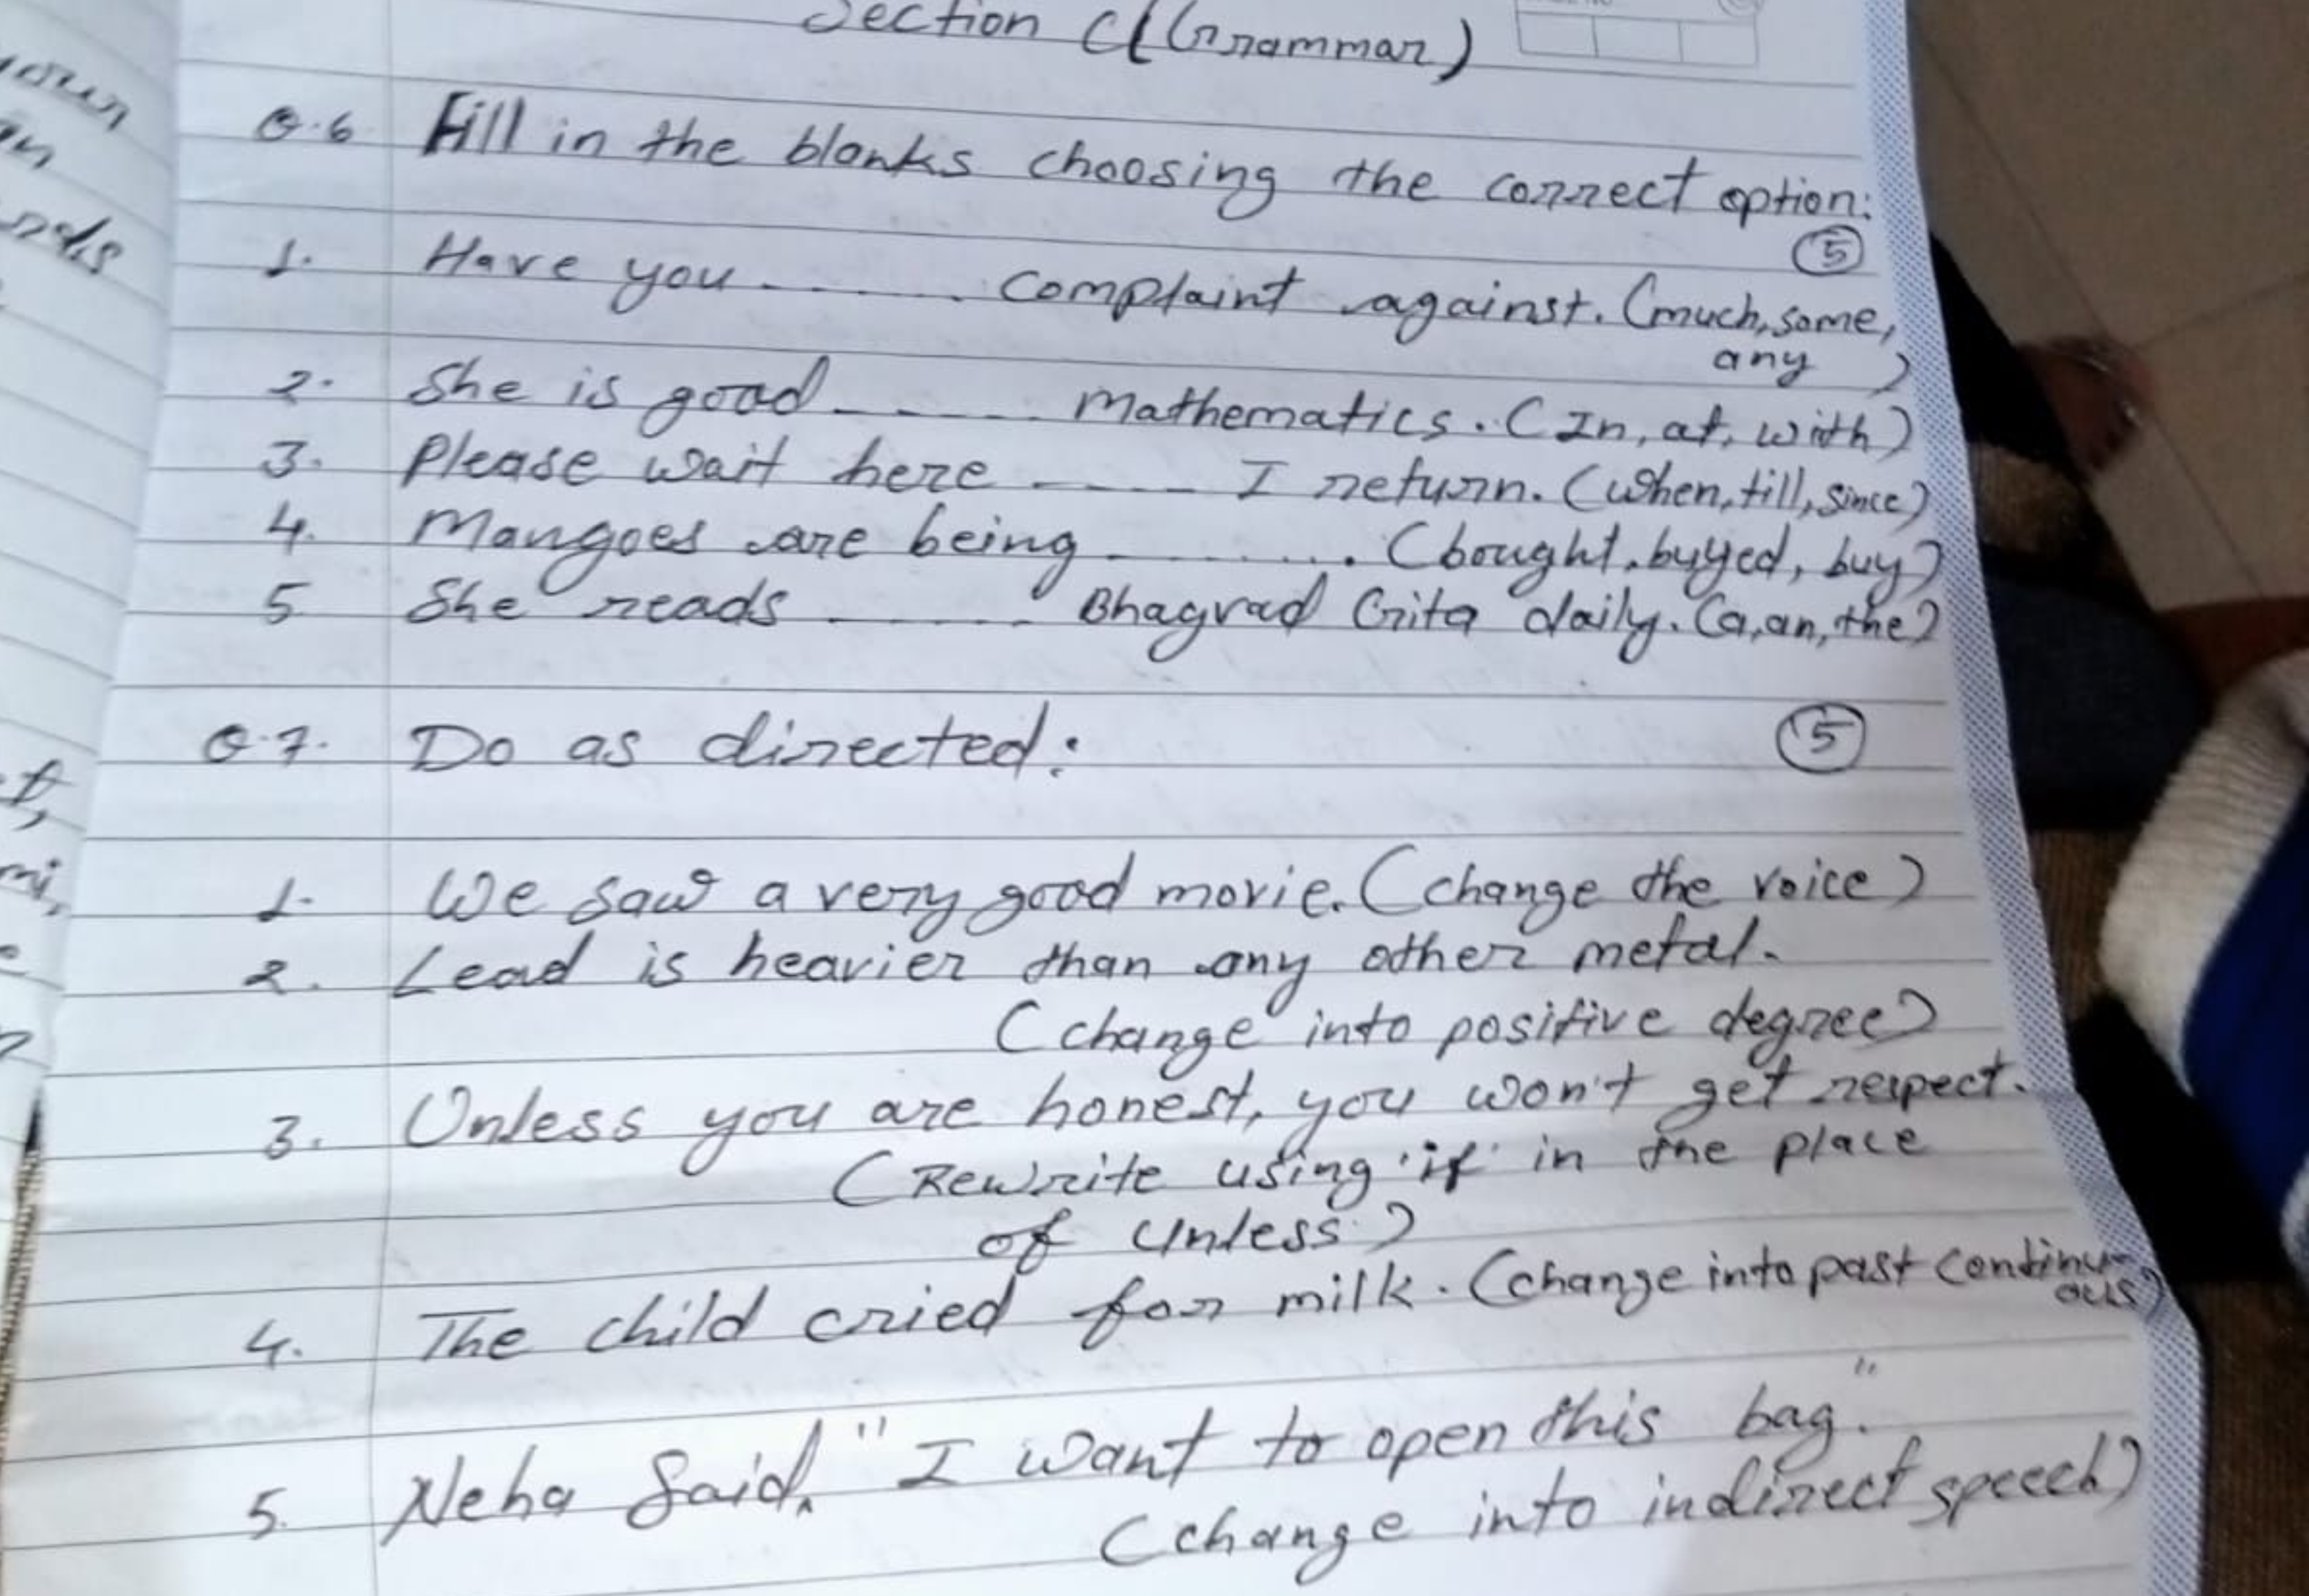 Section C (Grammar)
Q.6 Fill in the blanks choosing the correct option:
5
1. Have you ------ complaint against. (much, some,
any)
2. She is good ----- Mathematics. (In, at, with)
3. Please wait here ---- I return. (when, till, since)
4. Mangoes are being ....... (bought, buyed, buy)
5 She reads ------ Bhagvad Gita daily. (a, an, the)
Q.7. Do as directed:
5
1. We saw a very good movie. (change the voice)
2. Lead is heavier than any other metal.
(change into positive degree)
3. Unless you are honest, you won't get respect.
(Rewrite using 'if' in the place
of Unless)
4. The child cried for milk. (change into past continu-
ous)
5. Neha Said, "I want to open this bag."
(change into indirect speech)